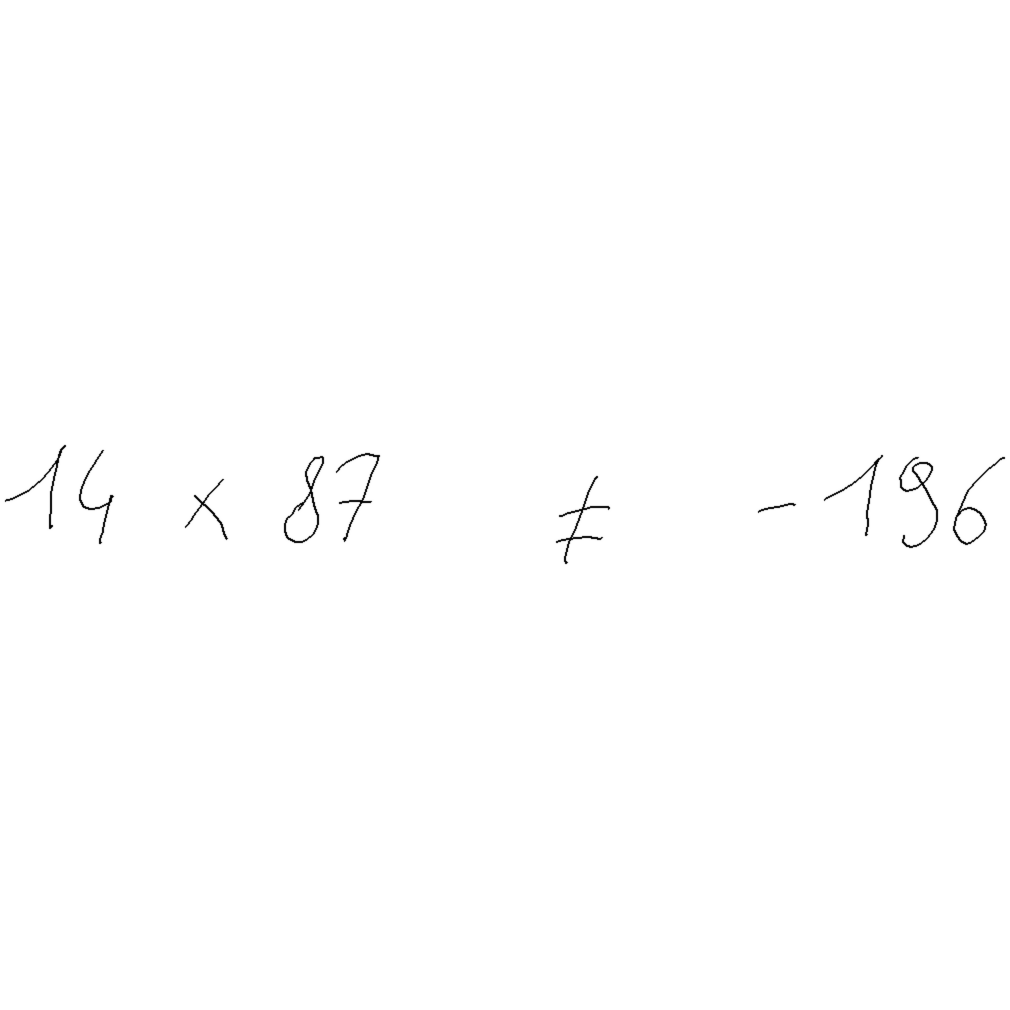 14 × 87 ≠ -196